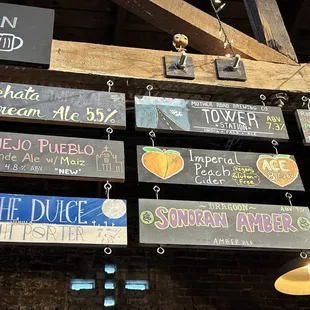 N
ehata
ream Ale 5.5%
EJO PUEBLO
nde Ale w/ Maiz
4.8% ABV
"NEW"
HE DULCE
PORTER
MOTHER ROAD BREWING CO
TOWER
STATION
INDIA PALE ALE
ABV
7.3%
Imperial
Peach
Cider
Vegan
Gluten
Free
ACE
DRAGOON
SONORAN AMBER
AMBER ALE
ABV